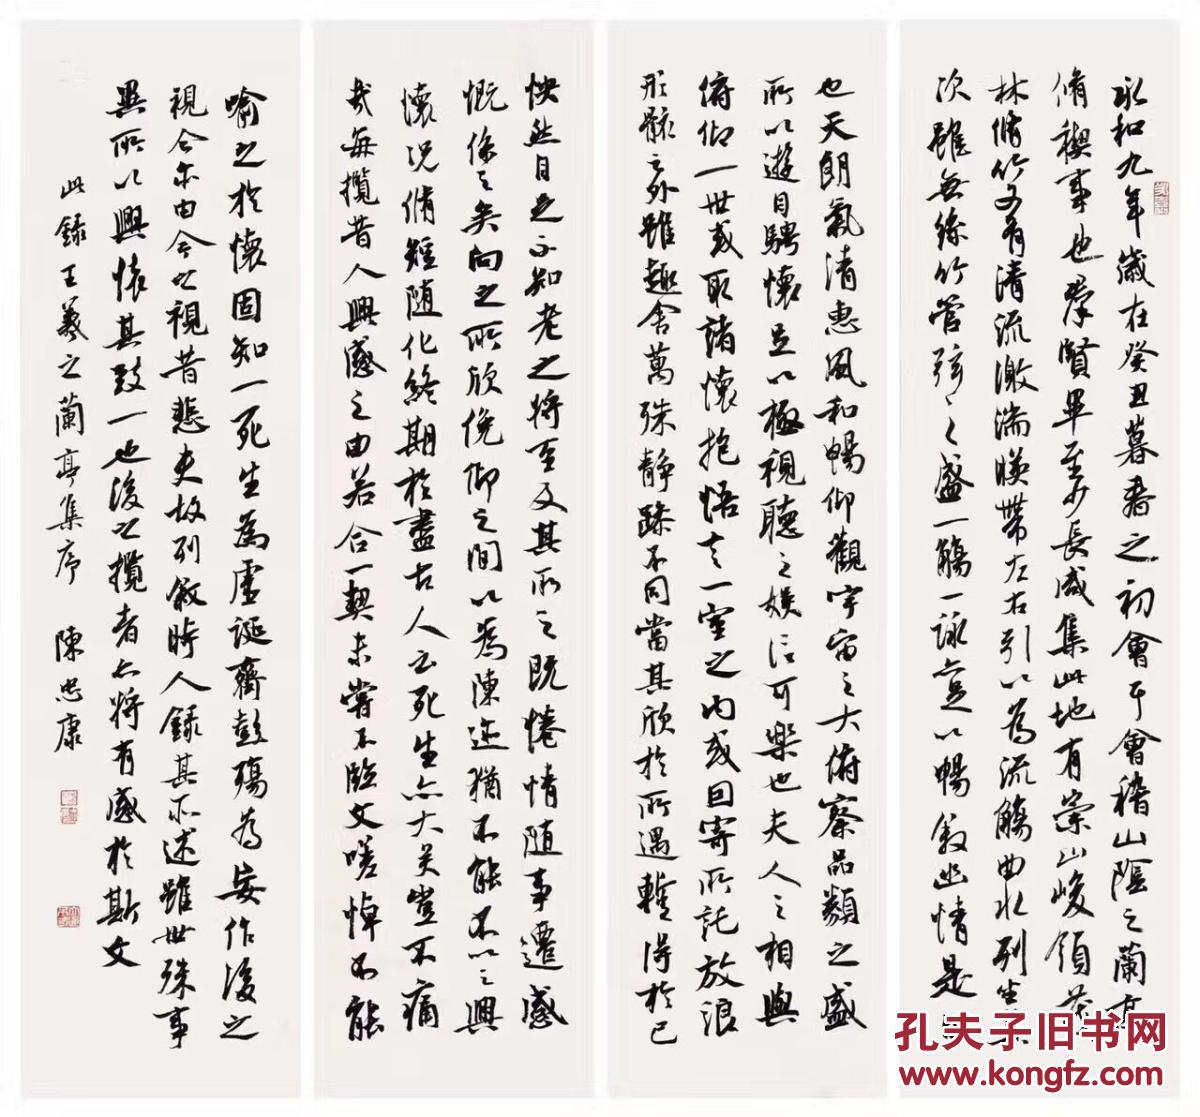 永和九年歲在癸丑暮春之初會于會稽山陰之蘭亭
脩禊事也羣賢畢至少長咸集此地有崇山峻領茂
林脩竹又有清流激湍暎帶左右引以為流觴曲水列坐其
次雖無絲竹管弦之盛一觴一詠亦足以暢敘幽情是日
也天朗氣清惠風和暢仰觀宇宙之大俯察品類之盛
所以遊目騁懷足以極視聽之娛信可樂也夫人之相與
俯仰一世或取諸懷抱悟言一室之內或因寄所託放浪
形骸之外雖趣舍萬殊靜躁不同當其欣於所遇蹔得於己
怏然自足不知老之將至及其所之既惓情隨事遷感
慨係之矣向之所欣俛仰之間以為陳迹猶不能不以之興
懷況脩短隨化終期於盡古人云死生亦大矣豈不痛
哉每攬昔人興感之由若合一契未嘗不臨文嗟悼不能
喻之於懷固知一死生為虛誕齊彭殤為妄作後之
視今亦由今之視昔悲夫故列敘時人錄其所述雖世殊事
異所以興懷其致一也後之攬者亦將有感於斯文
此錄王羲之蘭亭集序 陳忠康
孔夫子旧书网
www.kongfz.com